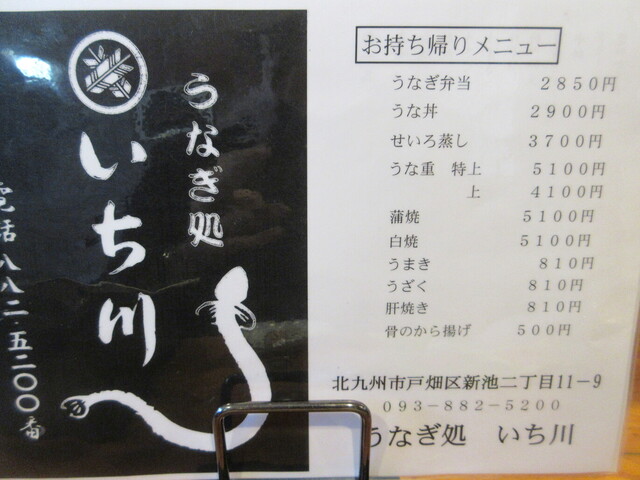 うなぎ処
いち川
電話 八八二・五二〇〇番
お持ち帰りメニュー
うなぎ弁当 2850円
うな丼 2900円
せいろ蒸し 3700円
うな重 特上 5100円
上 4100円
蒲焼 5100円
白焼 5100円
うまき 810円
うざく 810円
肝焼き 810円
骨のから揚げ 500円
北九州市戸畑区新池二丁目11-9
093-882-5200
うなぎ処 いち川